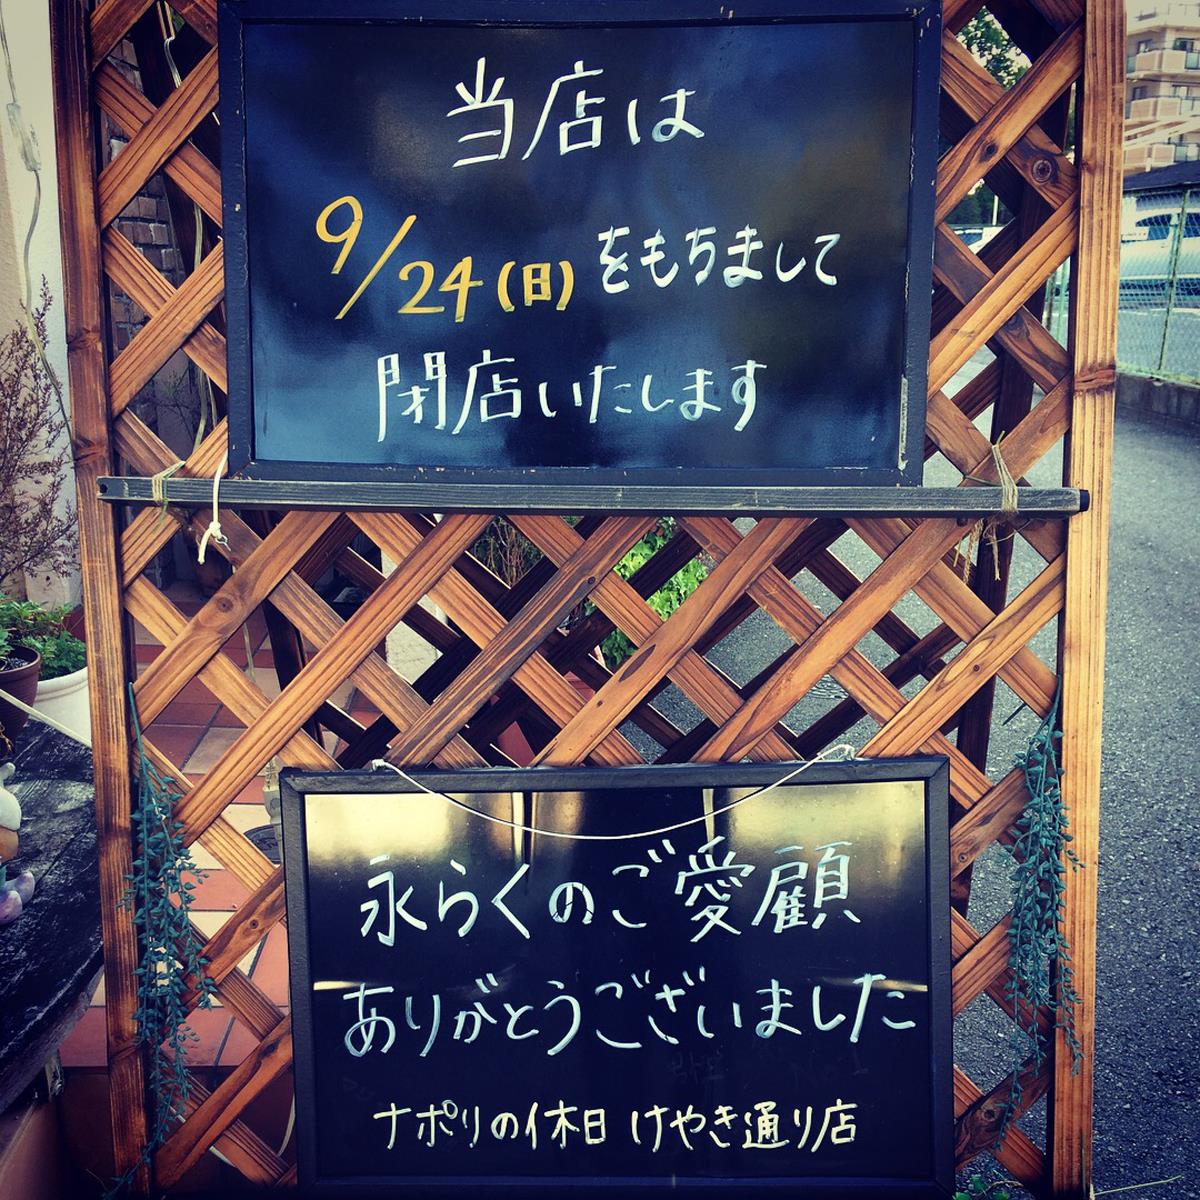 当店は
9/24(日)をもちまして
閉店いたします
永らくのご愛顧
ありがとうございました
ナポリの休日 けやき通り店